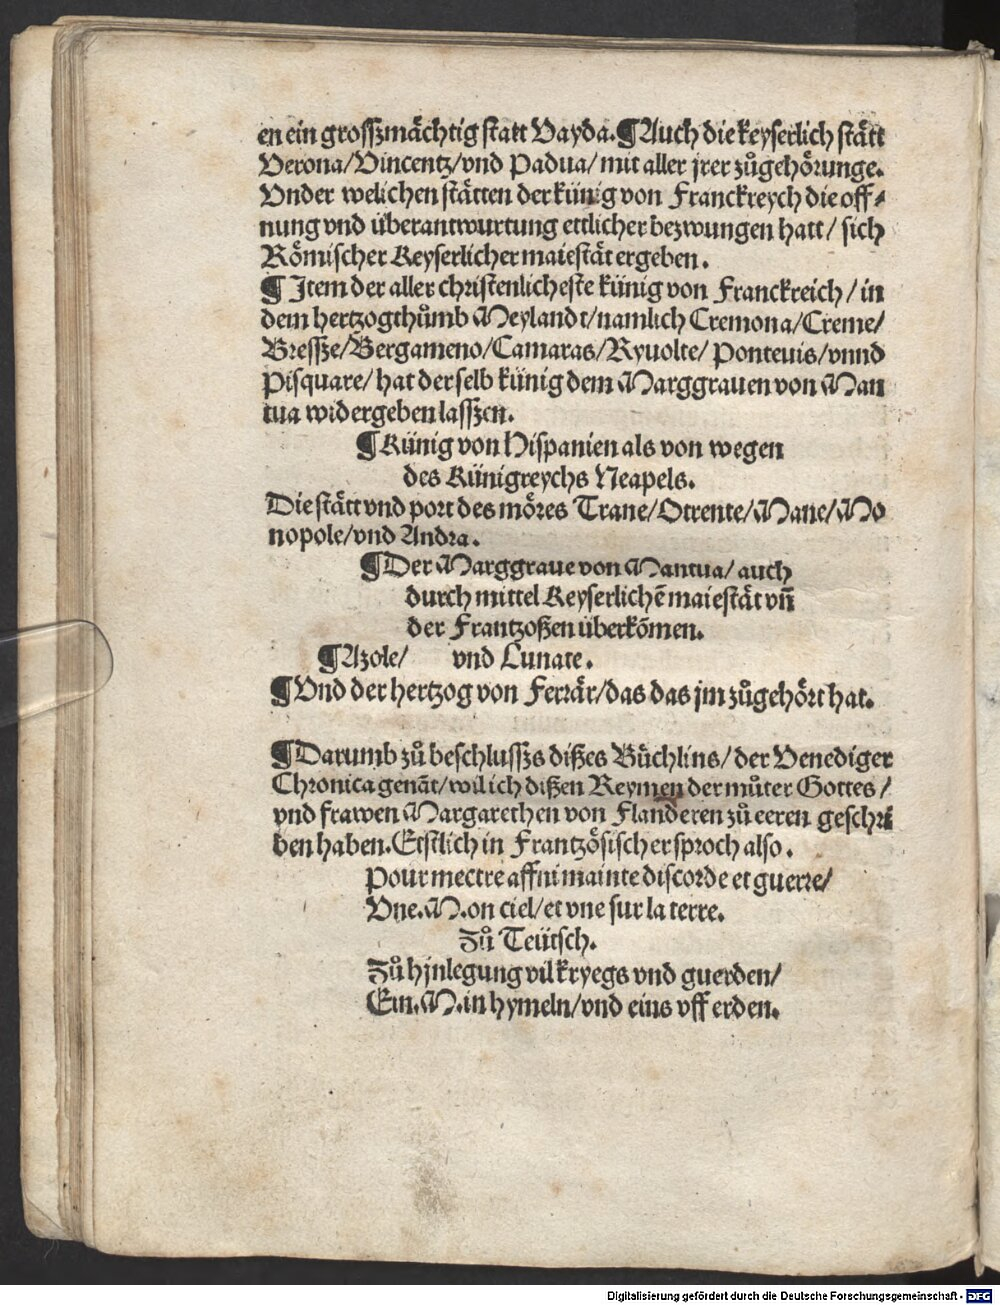 en ein grosszmächtig statt Vayda.¶Auch die keyserlich stätt
Verona/Vincentz/vnd Padua/ mit aller jrer zůgehörunge.
Vnder welichen stätten der künig von Franckreych die off⸗
nung vnd überantwurtung ettlicher bezwungen hatt/ sich
Römischer Keyserlicher maiestät ergeben.
¶ Item der aller christenlicheste künig von Franckreich/ in
dem hertzogthůmb Meylandt/namlich Cremona/Creme/
Bressze/Bergameno/Camaras/Ryuolte/ Ponteuis/vnnd
Pisquare/ hat derselb künig dem Marggrauen von Man
tua widergeben lasszen.
¶Künig von Hispanien als von wegen
des Künigreychs Neapels.
Die stätt vnd port des möres Trane/Otrente/Mane/Mo
nopole/vnd Andra.
¶Der Marggraue von Mantua/ auch
durch mittel Keyserlichē maiestät vn̄
der Frantzoßen überkōmen.
¶Azole/ vnd Lunate.
¶Vnd der hertzog von Ferrär/das das jm zůgehört hat.
¶Darumb zů beschlusszs dißes Büchlins/der Venediger
Chronica genāt/wil ich dißen Reymen der můter Gottes/
vnd frawen Margarethen von Flanderen zů eeren geschri
ben haben.Erstlich in Frantzösischer sproch also.
Pour mectre affni mainte discorde et guerre/
Vne.M.on ciel/et vne sur la terre.
Zů Teütsch.
Zů hjnlegung vil kryegs vnd guerden/
Ein.M.in hymeln/vnd eins vff erden.
Digitalisierung gefördert durch die Deutsche Forschungsgemeinschaft - DFG